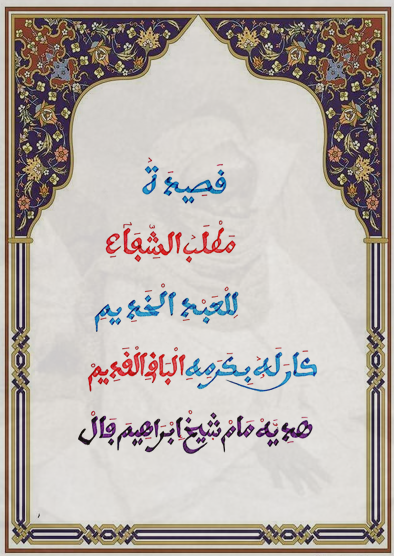 قَصِيدَةُ
مَطْلَبُ الشِّفَآءِ
لِلْعَبْدِ الْخَدِيمِ
كَانَ لَهُ بِكَرَمِهِ الْبَاقِ الْقَدِيمْ
هَدِيَّهْ مَامْ شِيخْ ابْرَاهِيمَ فَالْ